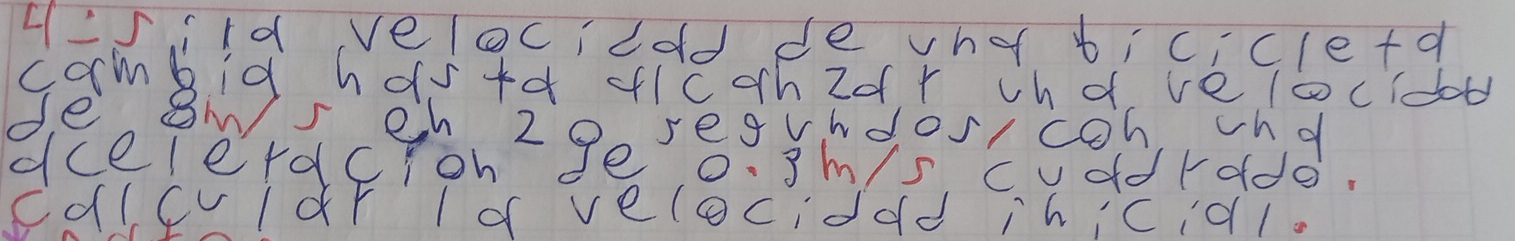 4=si la velocidad de una bicicleta
cambia hasta alcanzar una velocidad
de 8m/s en 20 segundos, con una
aceleracion de 0.3m/s cuadrado.
calcular la velocidad inicial.